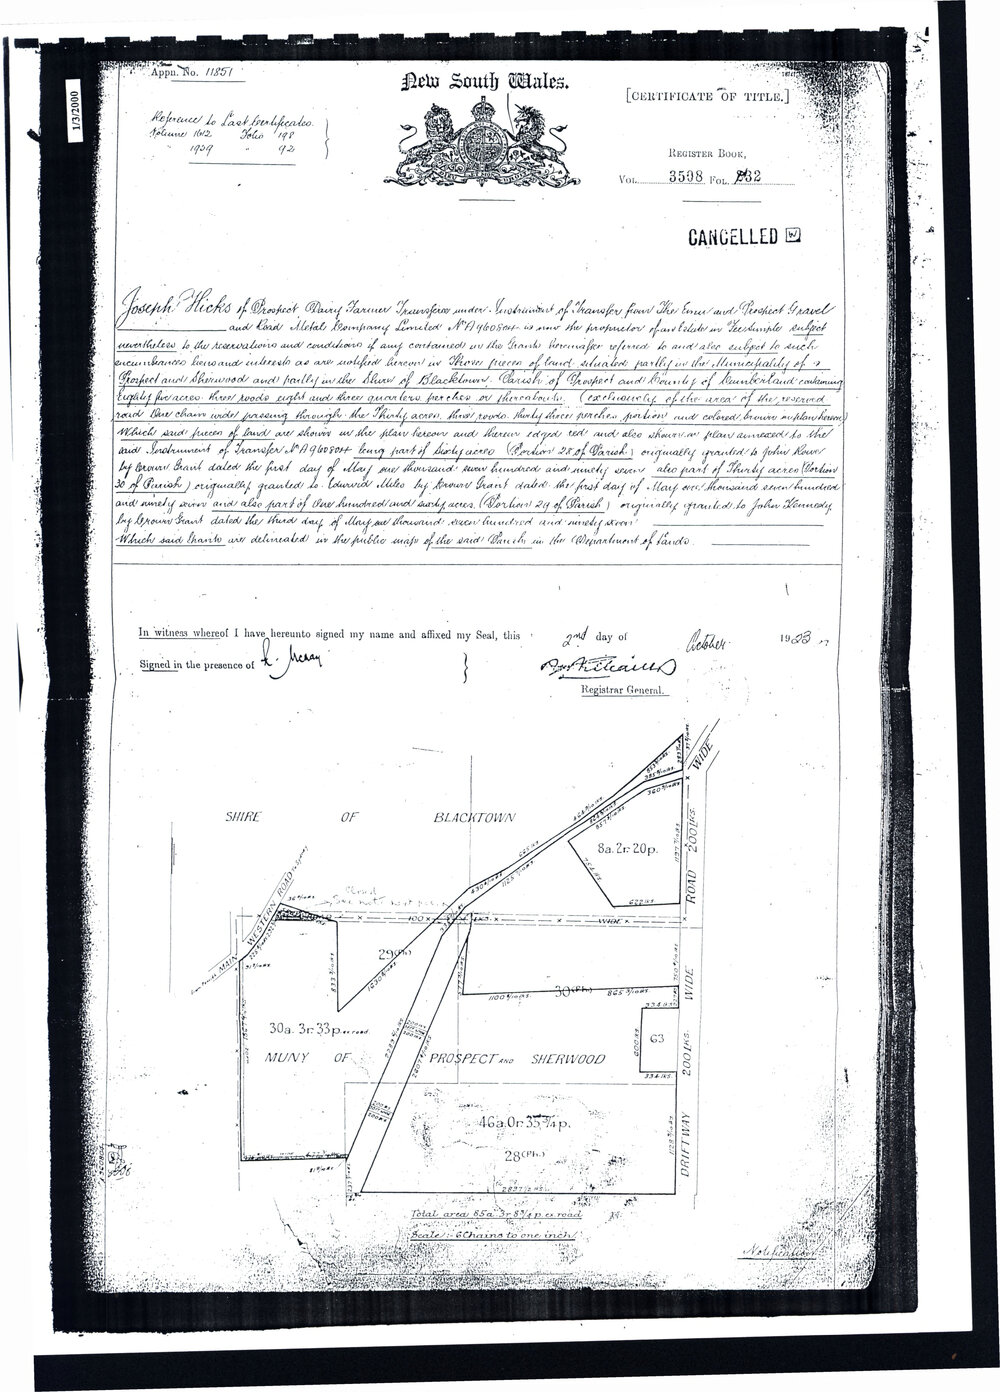 1/3/2000
Appn. No. 11851
New South Wales.
[CERTIFICATE OF TITLE.]
Reference to Last Certificates.
Volume 1612 Folio 198
" 1959 " 92
REGISTER BOOK,
VOL. 3508 FOL. 232
CANCELLED
Joseph Hicks of Prospect Dairy Farmer Transferee under Instrument of Transfer from The Emu and Prospect Gravel
and Road Metal Company Limited No A960804 is now the proprietor of an Estate in Fee Simple subject
nevertheless to the reservations and conditions if any contained in the Grants hereinafter referred to and also subject to such
incumbrances liens and interests as are notified hereon in Those pieces of land situated partly in the Municipality of
Prospect and Sherwood and partly in the Shire of Blacktown Parish of Prospect and County of Cumberland containing
Eighty five acres three roods eight and three quarters perches or thereabouts (exclusively of the area of the reserved
road One chain wide passing through the Thirty acres three roods thirty three perches portion and colored brown on plan hereon)
Which said pieces of land are shown in the plan hereon and therein edged red and also shown in plan annexed to the
said Instrument of Transfer No A960804 being part of Sixty acres (Portion 28 of Parish) originally granted to John
by Crown Grant dated the first day of May one thousand seven hundred and ninety seven also part of Thirty acres (Portion
30 of Parish) originally granted to Edward Miles by Crown Grant dated the first day of May one thousand seven hundred
and ninety seven and also part of One hundred and sixty acres (Portion 29 of Parish) originally granted to John Kennedy
by Crown Grant dated the third day of May one thousand seven hundred and ninety seven
Which said Grants are delineated in the public map of the said Parish in the Department of Lands.
In witness whereof I have hereunto signed my name and affixed my Seal, this 2nd day of October 1923
Signed in the presence of
Registrar General.
WIDE
SHIRE OF BLACKTOWN
8a. 2r. 20p.
ROAD 200 LKS.
622 lks
MAIN WESTERN ROAD
Closed
100 LKS. WIDE
29(Ph)
30(Ph)
30a. 3r. 33p. ex road.
WIDE
334 lks
600 lks
63
334 lks
MUNY OF PROSPECT AND SHERWOOD
200 LKS.
46a. 0r. 35 3/4 p.
28(Ph.)
DRIFTWAY
Total area 85a. 3r. 8 3/4 p. ex road
Scale :- 6 Chains to one inch
Notification